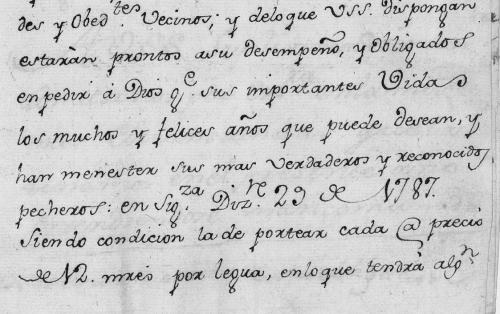 des y Obed.tes Vecinos; y deloque VSS. dispongan
estaràn prontos asu desempeño, y Obligados
en pedir á Dios q.e sus importantes Vidas
los muchos y felices años que puede desean, y
han menester sus mas verdaderos y reconocidos
pecheros: en Sig.za Diz.re 29 de 1787.
Siendo condicion la de portear cada @ precio
de 12. mrẽs por legua, enloque tendrà alg.n